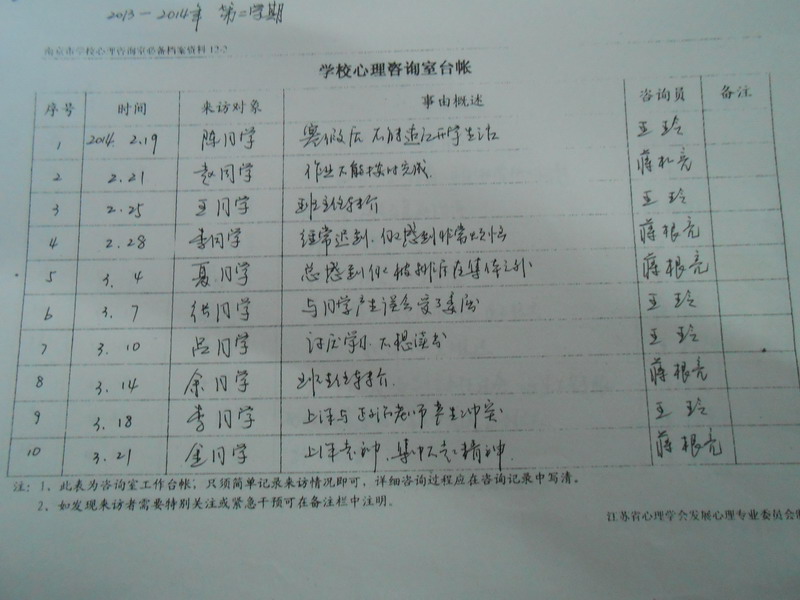 2013－2014年 第二学期
南京市学校心理咨询室必备档案资料 12-2
学校心理咨询室台帐
序号 时间 来访对象 事由概述 咨询员 备注
1 2014. 2.19 陈同学 寒假后不能适应开学生活 王玲
2 2.21 赵同学 作业不能按时完成. 蒋根亮
3 2.25 王同学 班主任转介 王玲
4 2.28 李同学 经常迟到. 感到非常 蒋根亮
5 3.4 夏同学 总感到 被排斥在集体之外 蒋根亮
6 3.7 同学 与同学产生误会受了委屈 王玲
7 3.10 吕同学 讨厌学习. 不想读书 王玲
8 3.14 余同学 班主任转介. 蒋根亮
9 3.18 李同学 上课与 老师产生冲突 王玲
10 3.21 金同学 上课走神. 集中不了精神. 蒋根亮
注：1、此表为咨询室工作台帐，只须简单记录来访情况即可，详细咨询过程应在咨询记录中写清。
2、如发现来访者需要特别关注或紧急干预可在备注栏中注明。
江苏省心理学会发展心理专业委员会